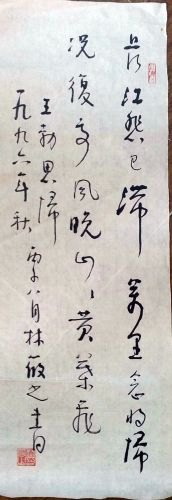 長江悲已滯萬里念將歸
況復高風晚山々黄葉飛
王勃思歸
一九九六年秋丙子八月林筱之書